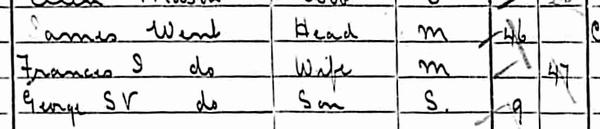 James Went Head M 46
Frances S do Wife M 47
George SV do Son S. 9